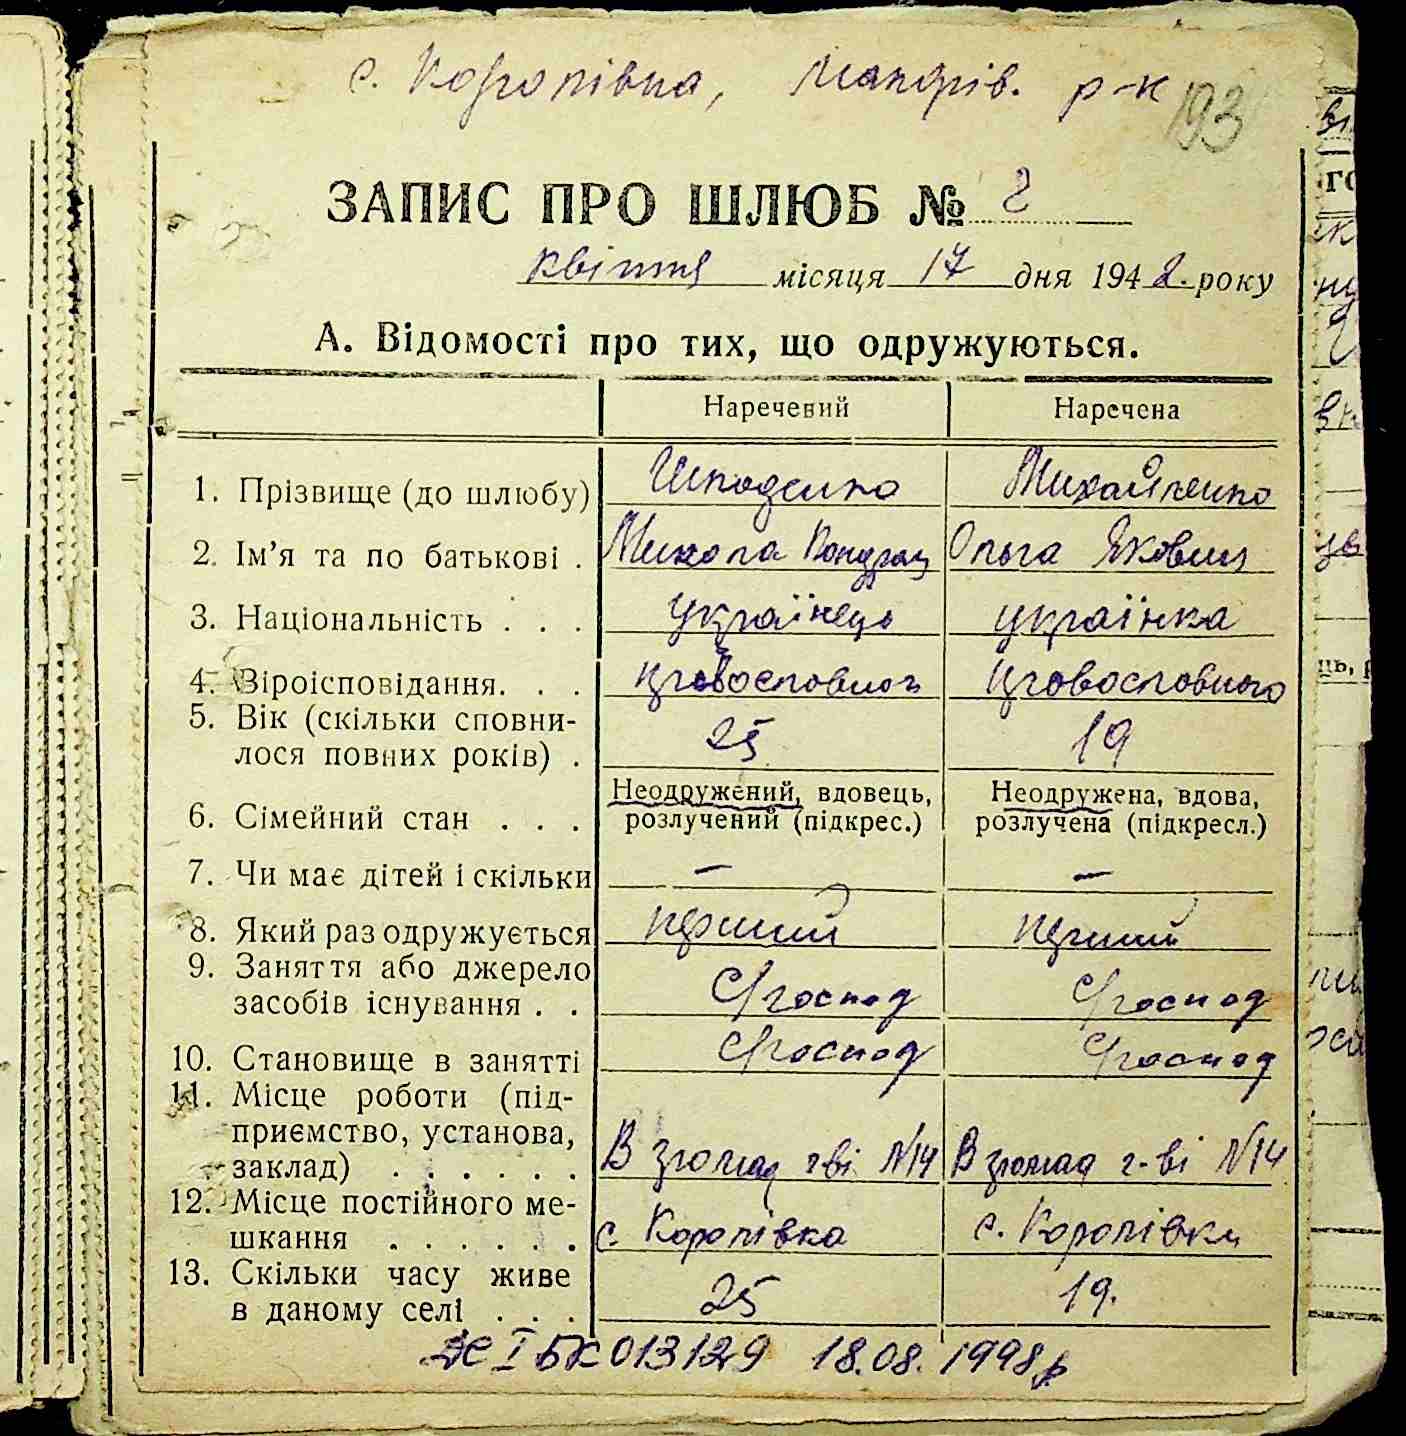 с. Королівка, Макарів. р-к
193
ЗАПИС ПРО ШЛЮБ № 2
квітня місяця 17 дня 1942. року
А. Відомості про тих, що одружуються.
Наречений Наречена
1. Прізвище (до шлюбу) Михайленко
2. Ім'я та по батькові . Микола Кондрат Ольга Яковна
3. Національність . . . українець українка
4. Віроісповідання. . . православног православного
5. Вік (скільки сповни-
лося повних років) . 25 19
6. Сімейний стан . . . Неодружений, вдовець, розлучений (підкрес.) Неодружена, вдова, розлучена (підкресл.)
7. Чи має дітей і скільки — —
8. Який раз одружується перший перший
9. Заняття або джерело
засобів існування . . С/господ С/господ
10. Становище в занятті С/господ С/господ
11. Місце роботи (під-
приємство, установа,
заклад) . . . . . . В громад г-ві №14 В громад г-ві №14
12. Місце постійного ме-
шкання . . . . . . с. Королівка с. Королівка
13. Скільки часу живе
в даному селі . . . 25 19.
І БК 013129 18.08.1998р